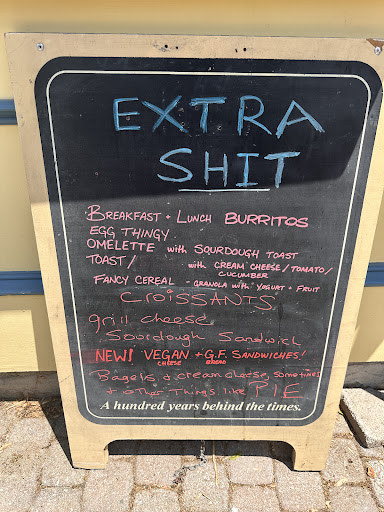 EXTRA
SHIT
BREAKFAST + LUNCH BURRITOS
EGG THINGY
OMELETTE with SOURDOUGH TOAST
TOAST / with CREAM CHEESE / TOMATO /
CUCUMBER
FANCY CEREAL - GRANOLA with YOGURT + FRUIT
CROISSANTS
grill cheese
Sourdough Sandwich
NEW! VEGAN + G.F. SANDWICHES!
CHEESE BREAD
Bagels & cream cheese, sometimes
+ other Things like PIE
A hundred years behind the times.